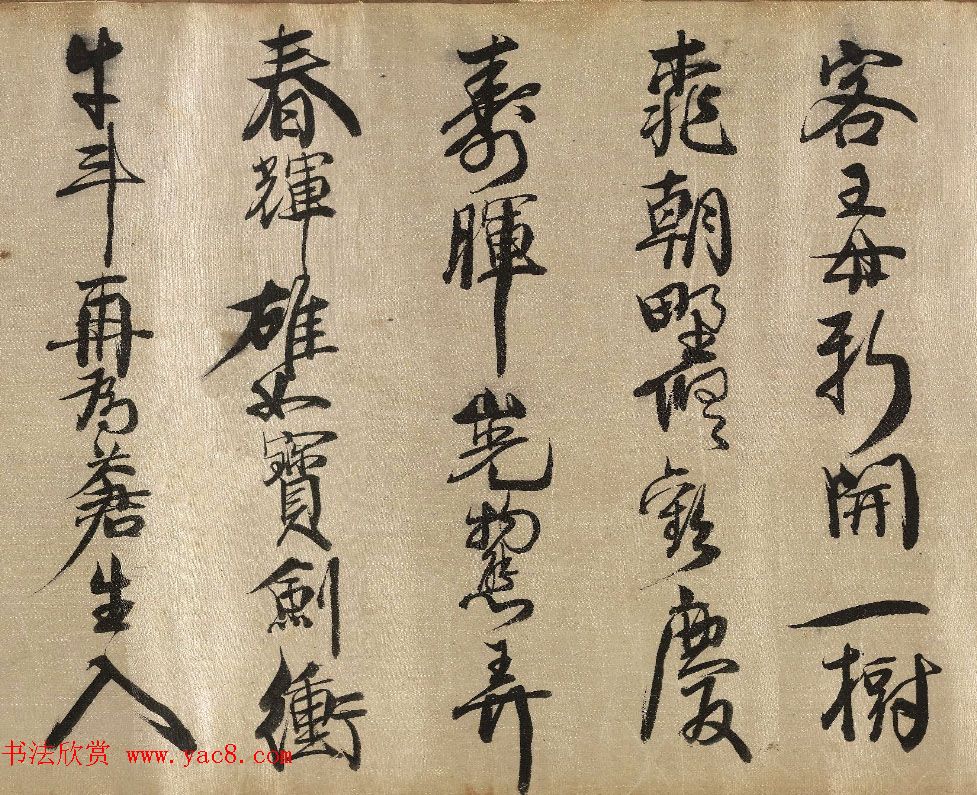 客王母新開一樹
桃朝野歡慶
壽暉山光物態弄
春輝雄如寶劍衝
牛斗再為蒼生入
书法欣赏 www.yac8.com